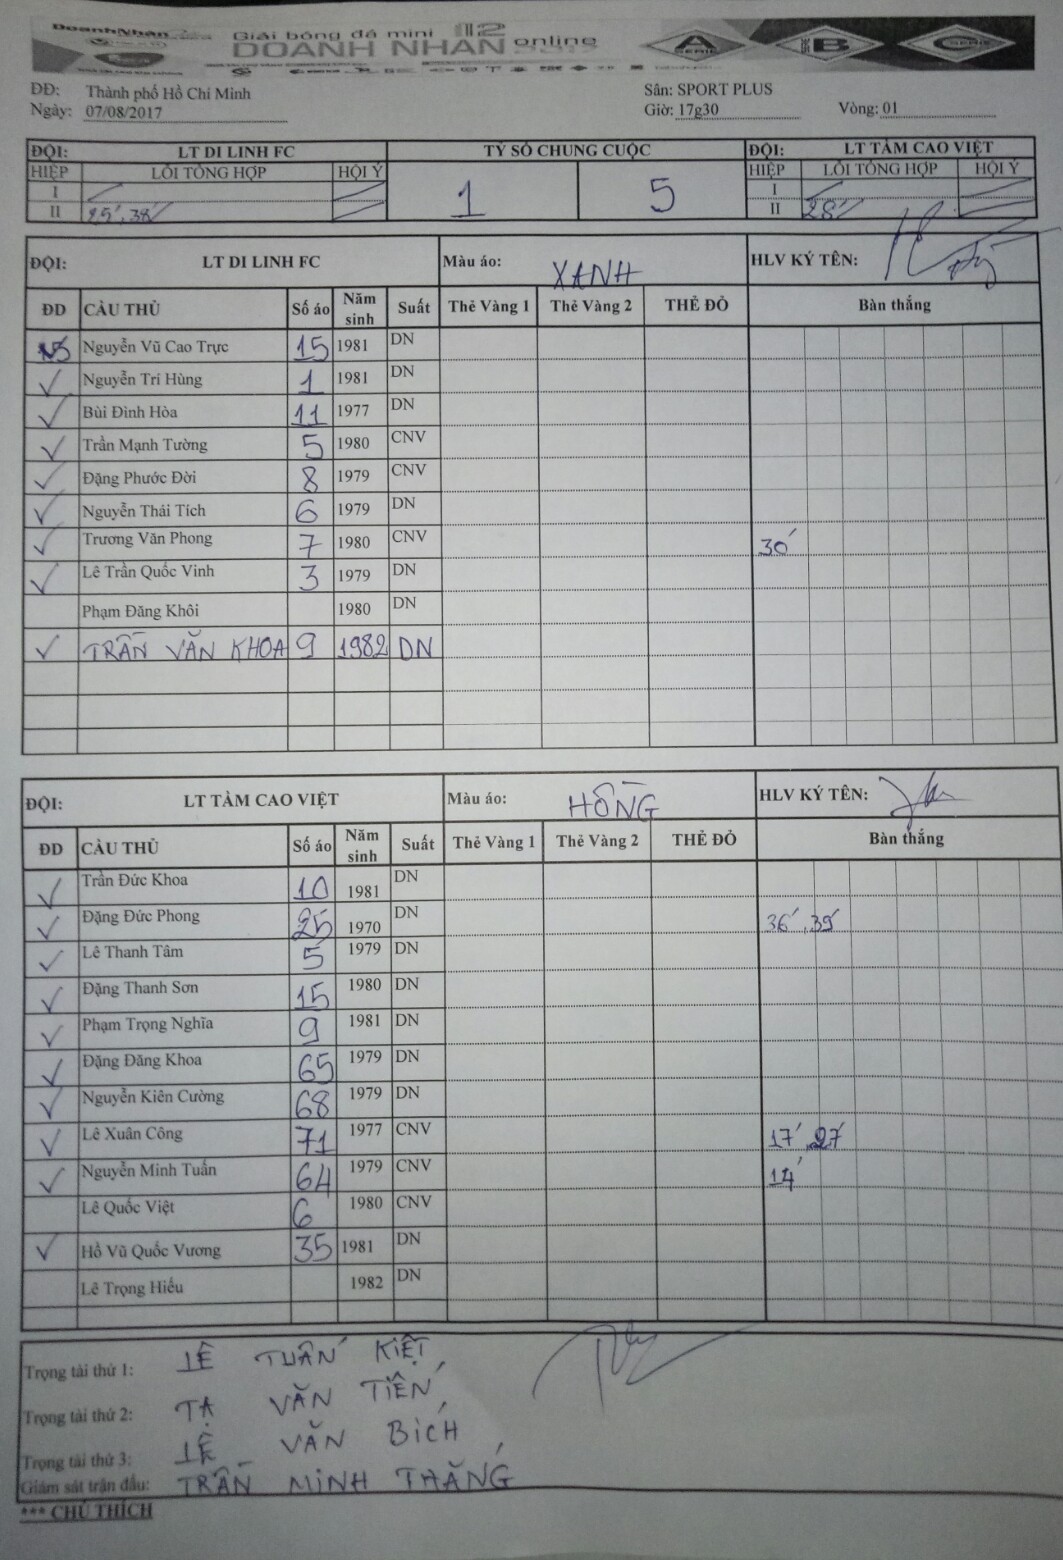 DoanhNhân
Giải bóng đá mini 12
DOANH NHAN online
A SERIE B C SERIE
ĐĐ: Thành phố Hồ Chí Minh Sân: SPORT PLUS
Ngày: 07/08/2017 Giờ: 17g30 Vòng: 01
ĐỘI: LT DI LINH FC TỶ SỐ CHUNG CUỘC ĐỘI: LT TẦM CAO VIỆT
HIỆP LỖI TỔNG HỢP HỘI Ý 1 5 HIỆP LỖI TỔNG HỢP HỘI Ý
I I
II 25', 38' II 28'
ĐỘI: LT DI LINH FC Màu áo: XANH HLV KÝ TÊN:
ĐD CẦU THỦ Số áo Năm sinh Suất Thẻ Vàng 1 Thẻ Vàng 2 THẺ ĐỎ Bàn thắng
Nguyễn Vũ Cao Trực 15 1981 DN
✓ Nguyễn Trí Hùng 1 1981 DN
✓ Bùi Đình Hòa 11 1977 DN
✓ Trần Mạnh Tường 5 1980 CNV
✓ Đặng Phước Đời 8 1979 CNV
✓ Nguyễn Thái Tich 6 1979 DN
✓ Trương Văn Phong 7 1980 CNV 30'
✓ Lê Trần Quốc Vinh 3 1979 DN
Phạm Đăng Khôi 1980 DN
✓ TRẦN VĂN KHOA 9 1982 DN
ĐỘI: LT TẦM CAO VIỆT Màu áo: HỒNG HLV KÝ TÊN:
ĐD CẦU THỦ Số áo Năm sinh Suất Thẻ Vàng 1 Thẻ Vàng 2 THẺ ĐỎ Bàn thắng
✓ Trần Đức Khoa 10 1981 DN
✓ Đặng Đức Phong 25 1970 DN 36', 39'
✓ Lê Thanh Tâm 5 1979 DN
✓ Đặng Thanh Sơn 15 1980 DN
✓ Phạm Trọng Nghĩa 9 1981 DN
✓ Đặng Đăng Khoa 65 1979 DN
✓ Nguyễn Kiên Cường 68 1979 DN
✓ Lê Xuân Công 71 1977 CNV 17', 27'
✓ Nguyễn Minh Tuấn 64 1979 CNV 14'
Lê Quốc Việt 6 1980 CNV
✓ Hồ Vũ Quốc Vương 35 1981 DN
Lê Trọng Hiếu 1982 DN
Trọng tài thứ 1: LÊ TUẤN KIỆT
Trọng tài thứ 2: TẠ VĂN TIẾN
Trọng tài thứ 3: LÊ VĂN BÍCH
Giám sát trận đấu: TRẦN MINH THẮNG
*** CHÚ THÍCH